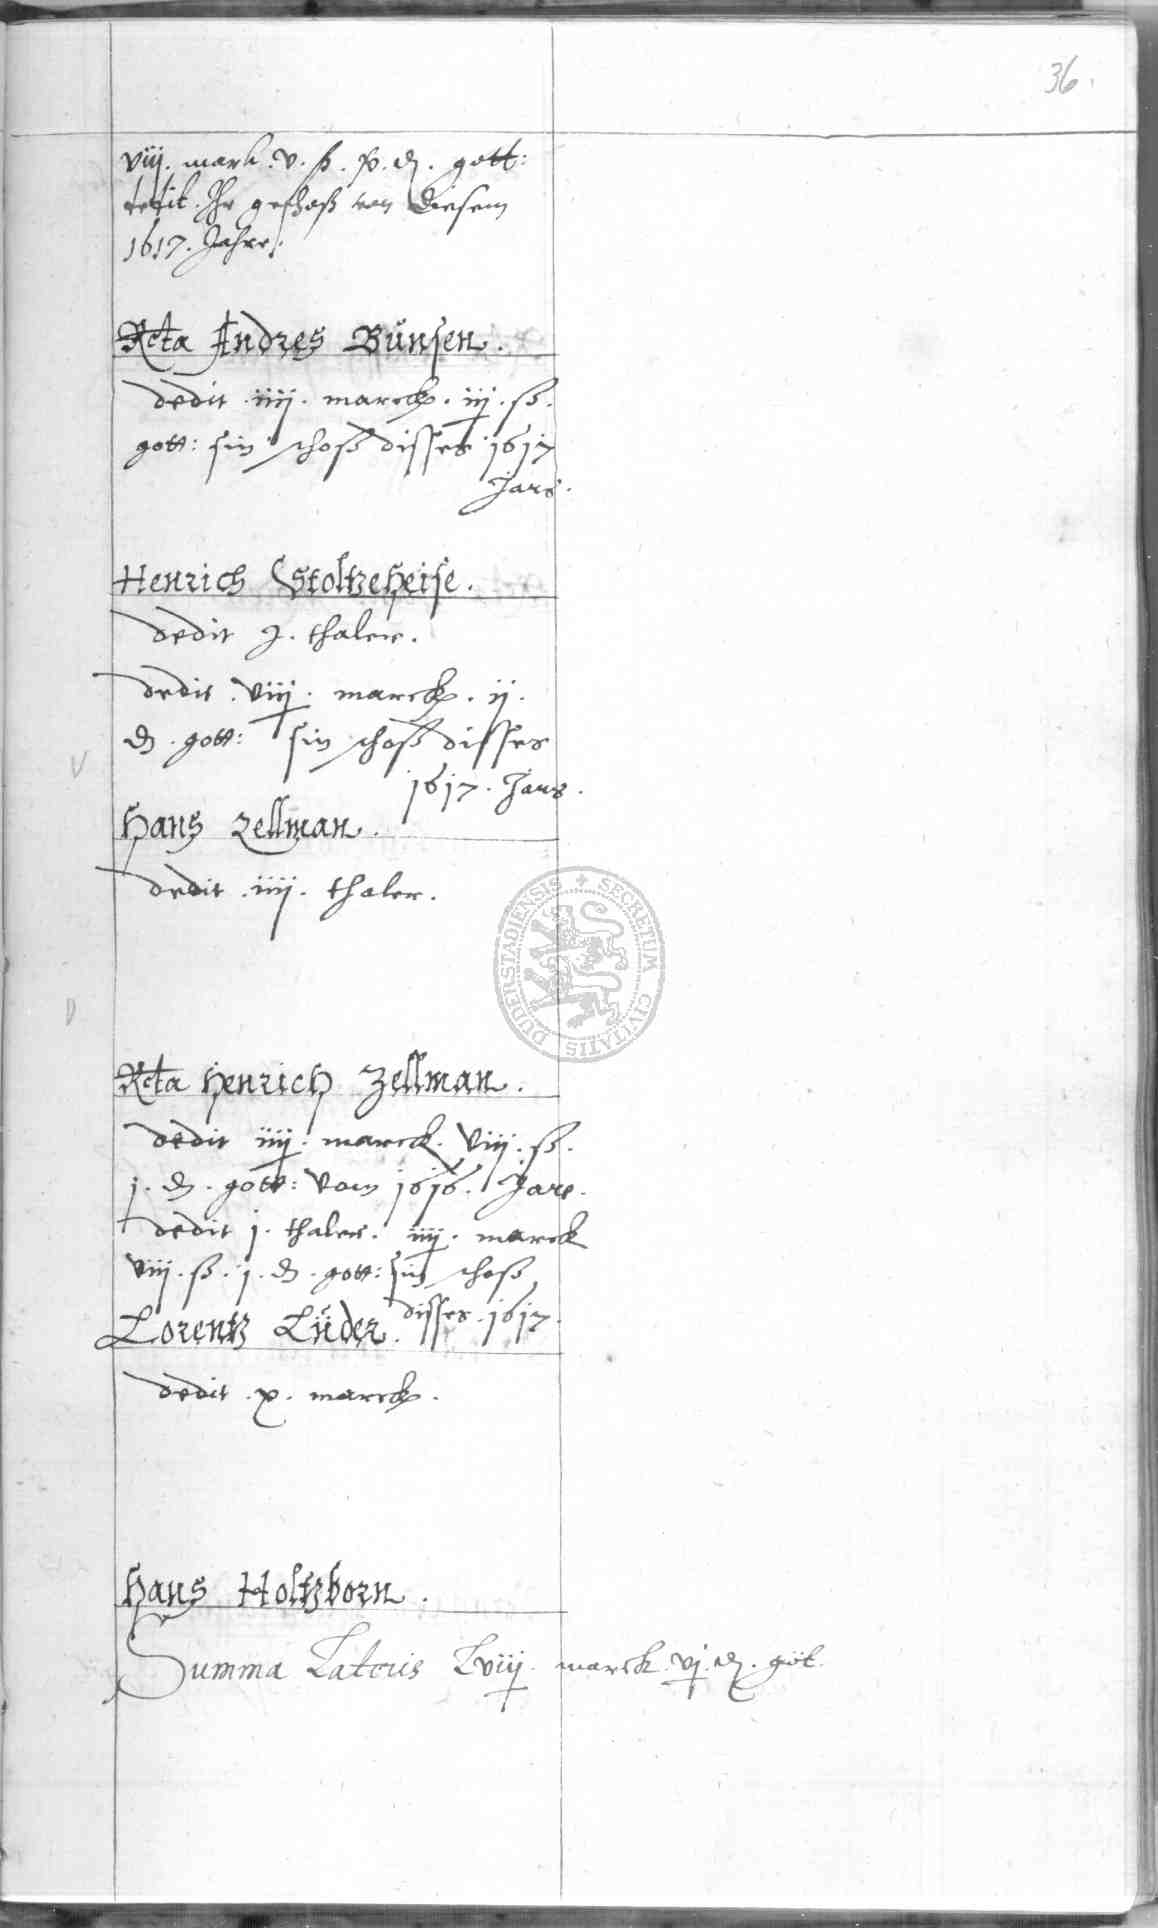 36.
viij. mark. v. ß. x. d. gott:
dedit. Ihr geschoß von diesem
1617. Jahre.
Rcta Andres Bünsen.
dedit .iiij. marck. iij. ß.
gott: sin schoß disses 1617
Jars.
Henrich Stoltzeheise.
dedit j. thaler.
dedit .viij. marck. ij.
d. gott: sin schoß disses
1617. Jars.
V
Hans Zellman.
dedit .iiij. thaler.
D
Rcta Henrich Zellman.
dedit iiij. marck. viij. ß.
j. d. gott: vom 1616. Jare.
dedit j. thaler. iiij. marck
viij. ß. j. d. gott: sin schoß
disses .1617.
Lorentz Lüder.
dedit .x. marck.
Hans Holtzborn.
Summa Lateris Lviij. marck. vj. d. gött.
SECRETUM CIVITATIS DUDERSTADIENSIS